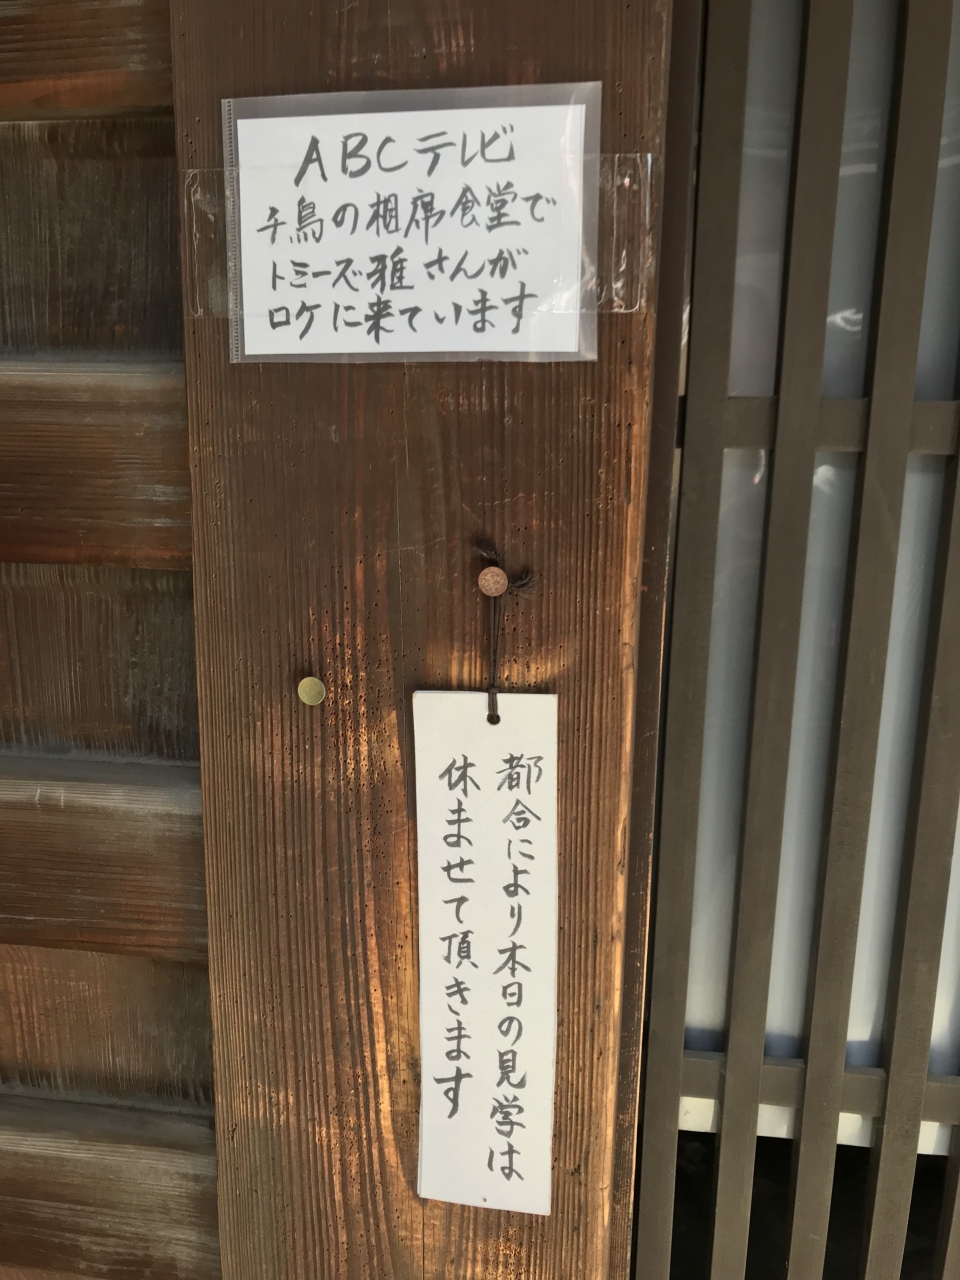 ABCテレビ
千鳥の相席食堂で
トミーズ雅さんが
ロケに来ています
都合により本日の見学は
休ませて頂きます